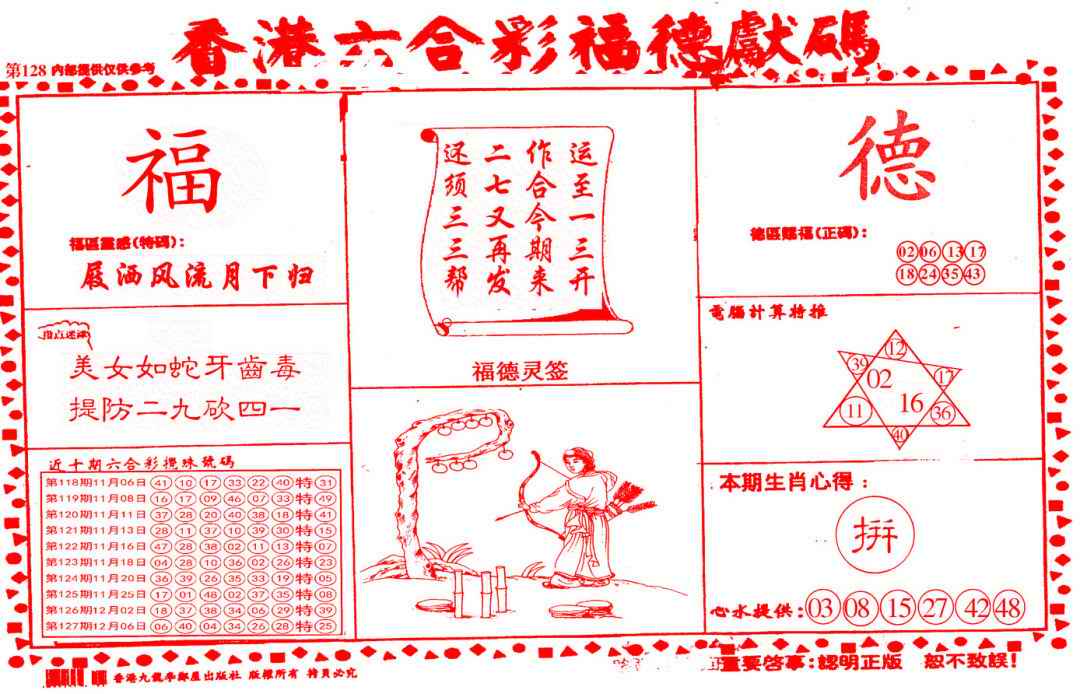 香港六合彩福德獻碼
第128 內部提供仅供参考
福
福區靈感(特碼):
屐洒风流月下归
指点迷津
美女如蛇牙齒毒
提防二九砍四一
近十期六合彩攪珠號碼
第118期11月06日 41 10 17 33 22 40 特 31
第119期11月08日 16 17 09 46 07 33 特 49
第120期11月11日 37 28 20 40 38 18 特 41
第121期11月13日 28 11 37 10 39 30 特 15
第122期11月16日 47 28 38 02 11 13 特 07
第123期11月18日 04 28 10 36 02 26 特 23
第124期11月20日 36 39 26 35 33 19 特 05
第125期11月25日 17 01 48 02 37 35 特 08
第126期12月02日 18 37 38 34 06 29 特 39
第127期12月06日 06 40 04 34 26 28 特 25
运至一三开
作合今期来
二七又再发
还须三三帮
福德灵签
德
德區賜福(正碼):
02 06 13 17
18 24 35 43
電腦計算特推
12
39
02
17
11
16
36
40
本期生肖心得:
拼
心水提供: 03 08 15 27 42 48
重要啓事:認明正版 恕不致誤!
香港九龍學鄰屋出版社 版權所有 持員必究